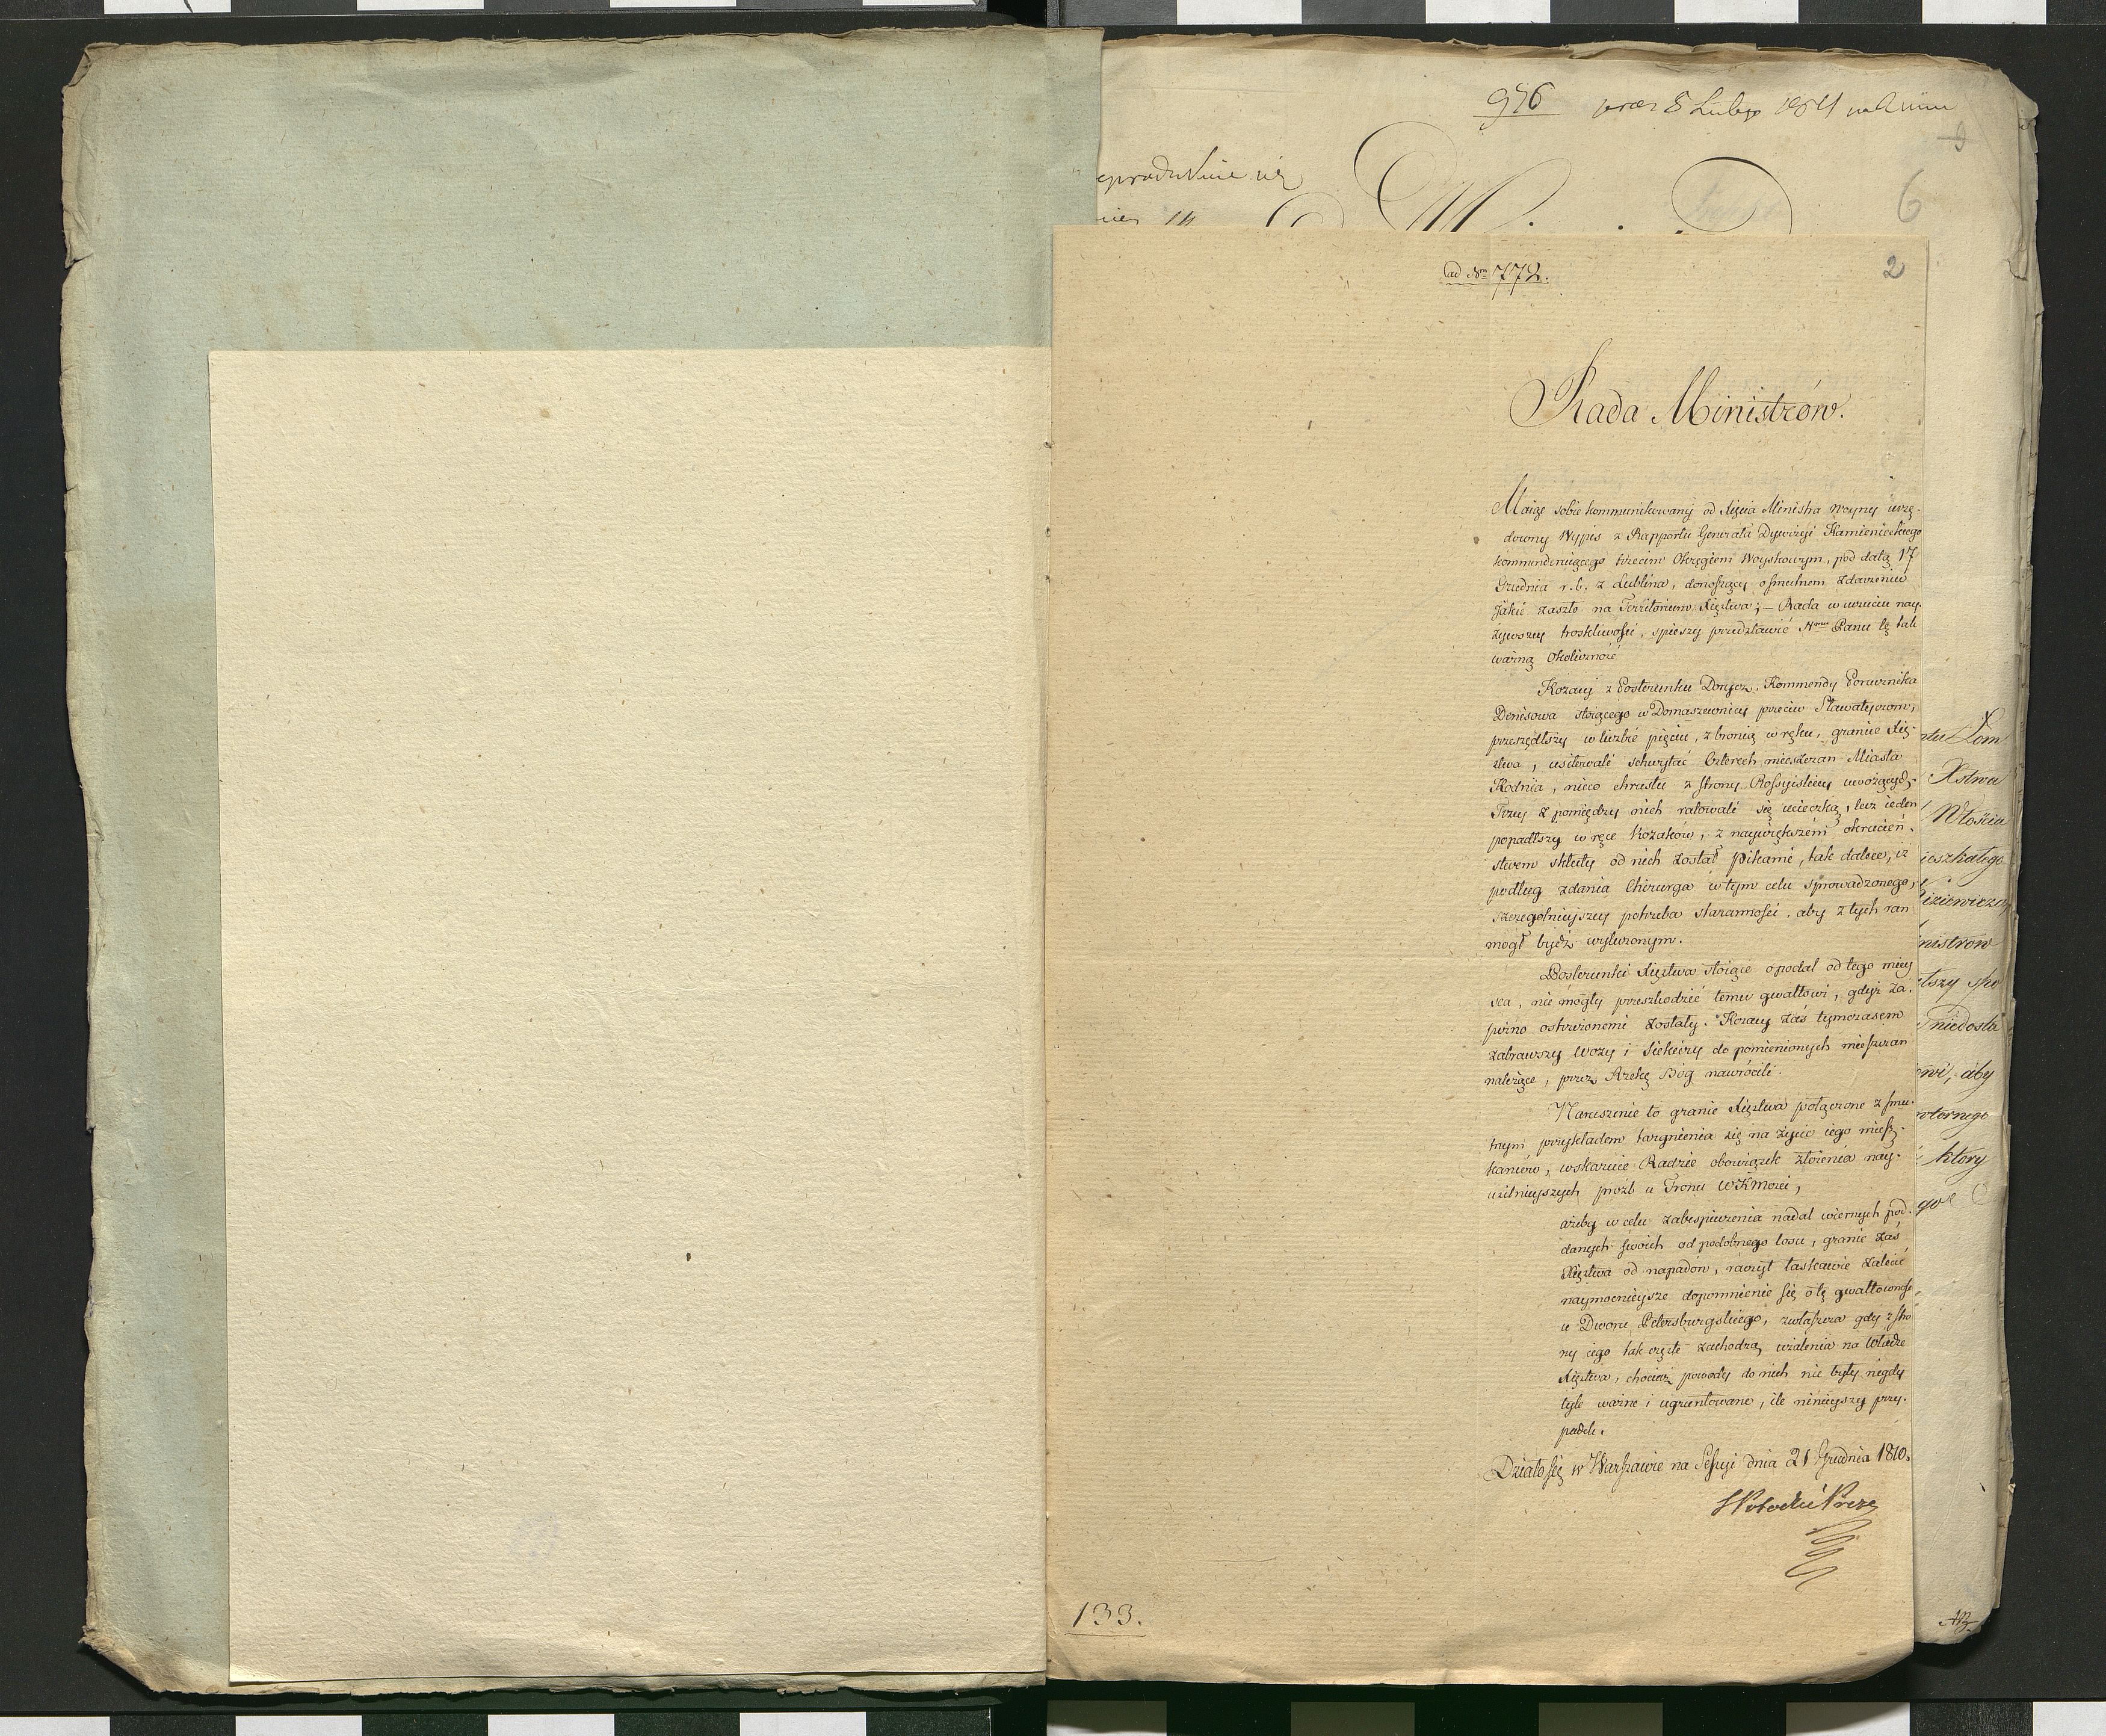 976
6
ad Nrm 772.
2
Rada Ministrów.
Maiąc sobie kommunikowany od Xięcia Ministra Woyny urzę-
downy Wypis z Rapportu Generała Dywizyi Kamienieckiego
kommenderuiącego trzecim Okręgiem Woyskowym, pod datą 17
Grudnia r.b. z Lublina, donoszący o smutnem zdarzeniu
jakie zaszło na Territorium Xięstwa; — Rada w uczuciu nay-
żywszey troskliwości, spieszy przedstawić Nmu Panu tę tak
ważną Okoliczność
Kozacy z Posterunku Kommendy Porucznika
Denisowa stoiącego w Domaszewnicy przeciw Sławatyczom,
przeszedłszy w liczbie pięciu, z bronią w ręku, granice Xię-
stwa, usiłowali schwytać Czterech mieszczan Miasta
Kodnia, nieco chrustu z strony Rossyiskiey uwożących.
Trzey z pomiędzy nich ratowali się ucieczką, lecz ieden
popadłszy w ręce Kozaków, z naywiększém okrucień-
stwem skłuty od nich został Pikami, tak dalece, iż
podług zdania Chirurga w tym celu sprowadzonego,
szczegolnieyszey potrzeba staranności, aby z tych ran
mogł bydź wyleczonym.
Posterunki Xięstwa stoiące opodal od tego miey
sca, nie mogły przeszkodzić temu gwałtowi, gdyż za-
pozno ostrzeżonemi zostały. Kozacy zaś tymczasem
zabrawszy Wozy i Siekiery do pomienionych mieszczan
należące, przez Rzekę Bóg nawrócili.
Naruszenie to granic Xięstwa połączone z smu-
tnym przykładem targnienia się na życie iego miesz-
kańców, wskazuie Radzie obowiązek złożenia nay-
usilnieyszych prożb u Tronu WKMości,
ażeby w celu zabespieczenia nadal wiernych pod-
danych swoich od podobnego losu, granic zaś
Xięstwa od napadów, raczył łaskawie zalecić
naymocnieysze dopomnienie się o tę gwałtowność
u Dworu Petersburgskiego, zwłaszcza gdy z stro
ny iego tak częste zachodzą użalenia na Władze
Xięstwa, chociaż powody do nich nie były nigdy
tyle ważne i ugruntowane, ile ninieyszy przy-
padek.
Działo się w Warszawie na Sessyi dnia 21 Grudnia 1810.
133.
Xstwa
Włościa
ieszkałego
nistrow
niedosta
aby
który